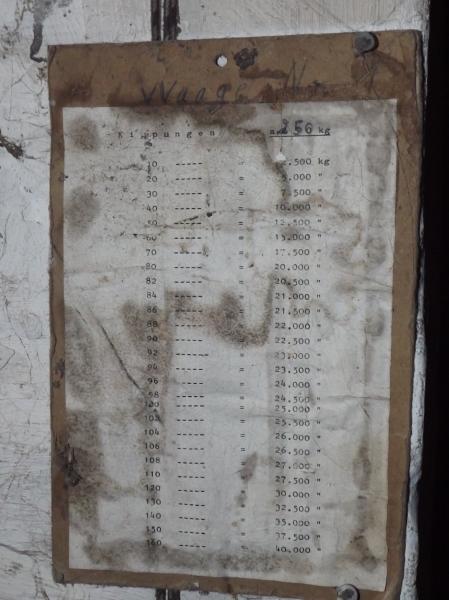 Waage Nr.
Kippungen = 256 kg
10 ----- = 2.500 kg
20 ----- = 5.000 "
30 ----- = 7.500 "
40 ----- = 10.000 "
50 ----- = 12.500 "
60 ----- = 15.000 "
70 ----- = 17.500 "
80 ----- = 20.000 "
82 ----- = 20.500 "
84 ----- = 21.000 "
86 ----- = 21.500 "
88 ----- = 22.000 "
90 ----- = 22.500 "
92 ----- = 23.000 "
94 ----- = 23.500 "
96 ----- = 24.000 "
98 ----- = 24.500 "
100 ----- = 25.000 "
102 ----- = 25.500 "
104 ----- = 26.000 "
106 ----- = 26.500 "
108 ----- = 27.000 "
110 ----- = 27.500 "
120 ----- = 30.000 "
130 ----- = 32.500 "
140 ----- = 35.000 "
150 ----- = 37.500 "
160 ----- = 40.000 "